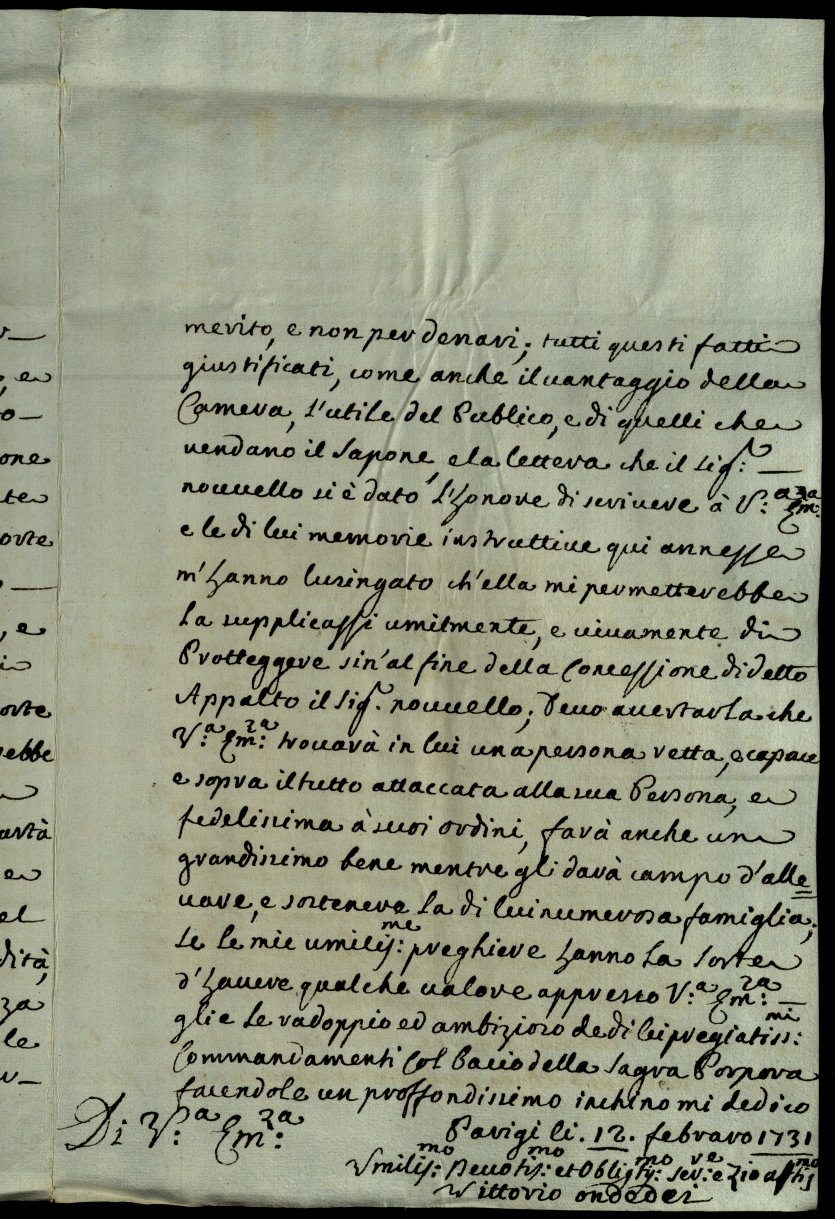 merito, e non per denari; tutti questi fatti
giustificati, come anche il vantaggio della
Camera, l'utile del Publico, e di quelli che
vendano il Sapone, e la lettera che il Sig.r
nouvello si è dato l'honore di scrivere à V.a Em.za
e le di lui memorie instruttive qui annesse
m'hanno lusingato ch'ella mi permetterebbe
la supplicassi umilmente, e vivamente di
Protteggere sin'al fine della Concessione di detto
Appalto il Sig.r nouvello; Devo avertarla che
V.a Em.za trovarà in lui una persona retta, e capace
e sopra il tutto attaccata alla sua Persona, e
fedelissima à suoi ordini, farà anche un
grandissimo bene mentre gli darà campo d'alle=
vare, e sostenere la di lui numerosa famiglia;
Se le mie umiliss:me preghiere hanno la Sorte
d'havere qualche valore appresso V.a Em:za
glie le radoppio ed ambizioso de di lei pregiatiss:mi
Commandamenti Col bacio della Sagra Porpora
facendole un proffondissimo inchino mi dedico
Di V:a Em:za
Parigi li. 12. febraro 1731
Umilis:mo Devotis:mo et Obligtis:mo ser:re e Zio affmo
Vittorio ondedei
v—
, e
o—
one
te
orte
—
, e
i
orte
rebbe
artà
e
el
dità,
za
le
v—